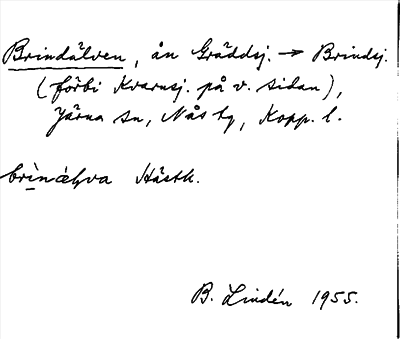 Brindälven, ån Gräddsj. → Brindsj.
(förbi Kvarnsj. på v. sidan),
Järna sn, Nås tg, Kopp. l.
Hästh.
B. Lindén 1955.